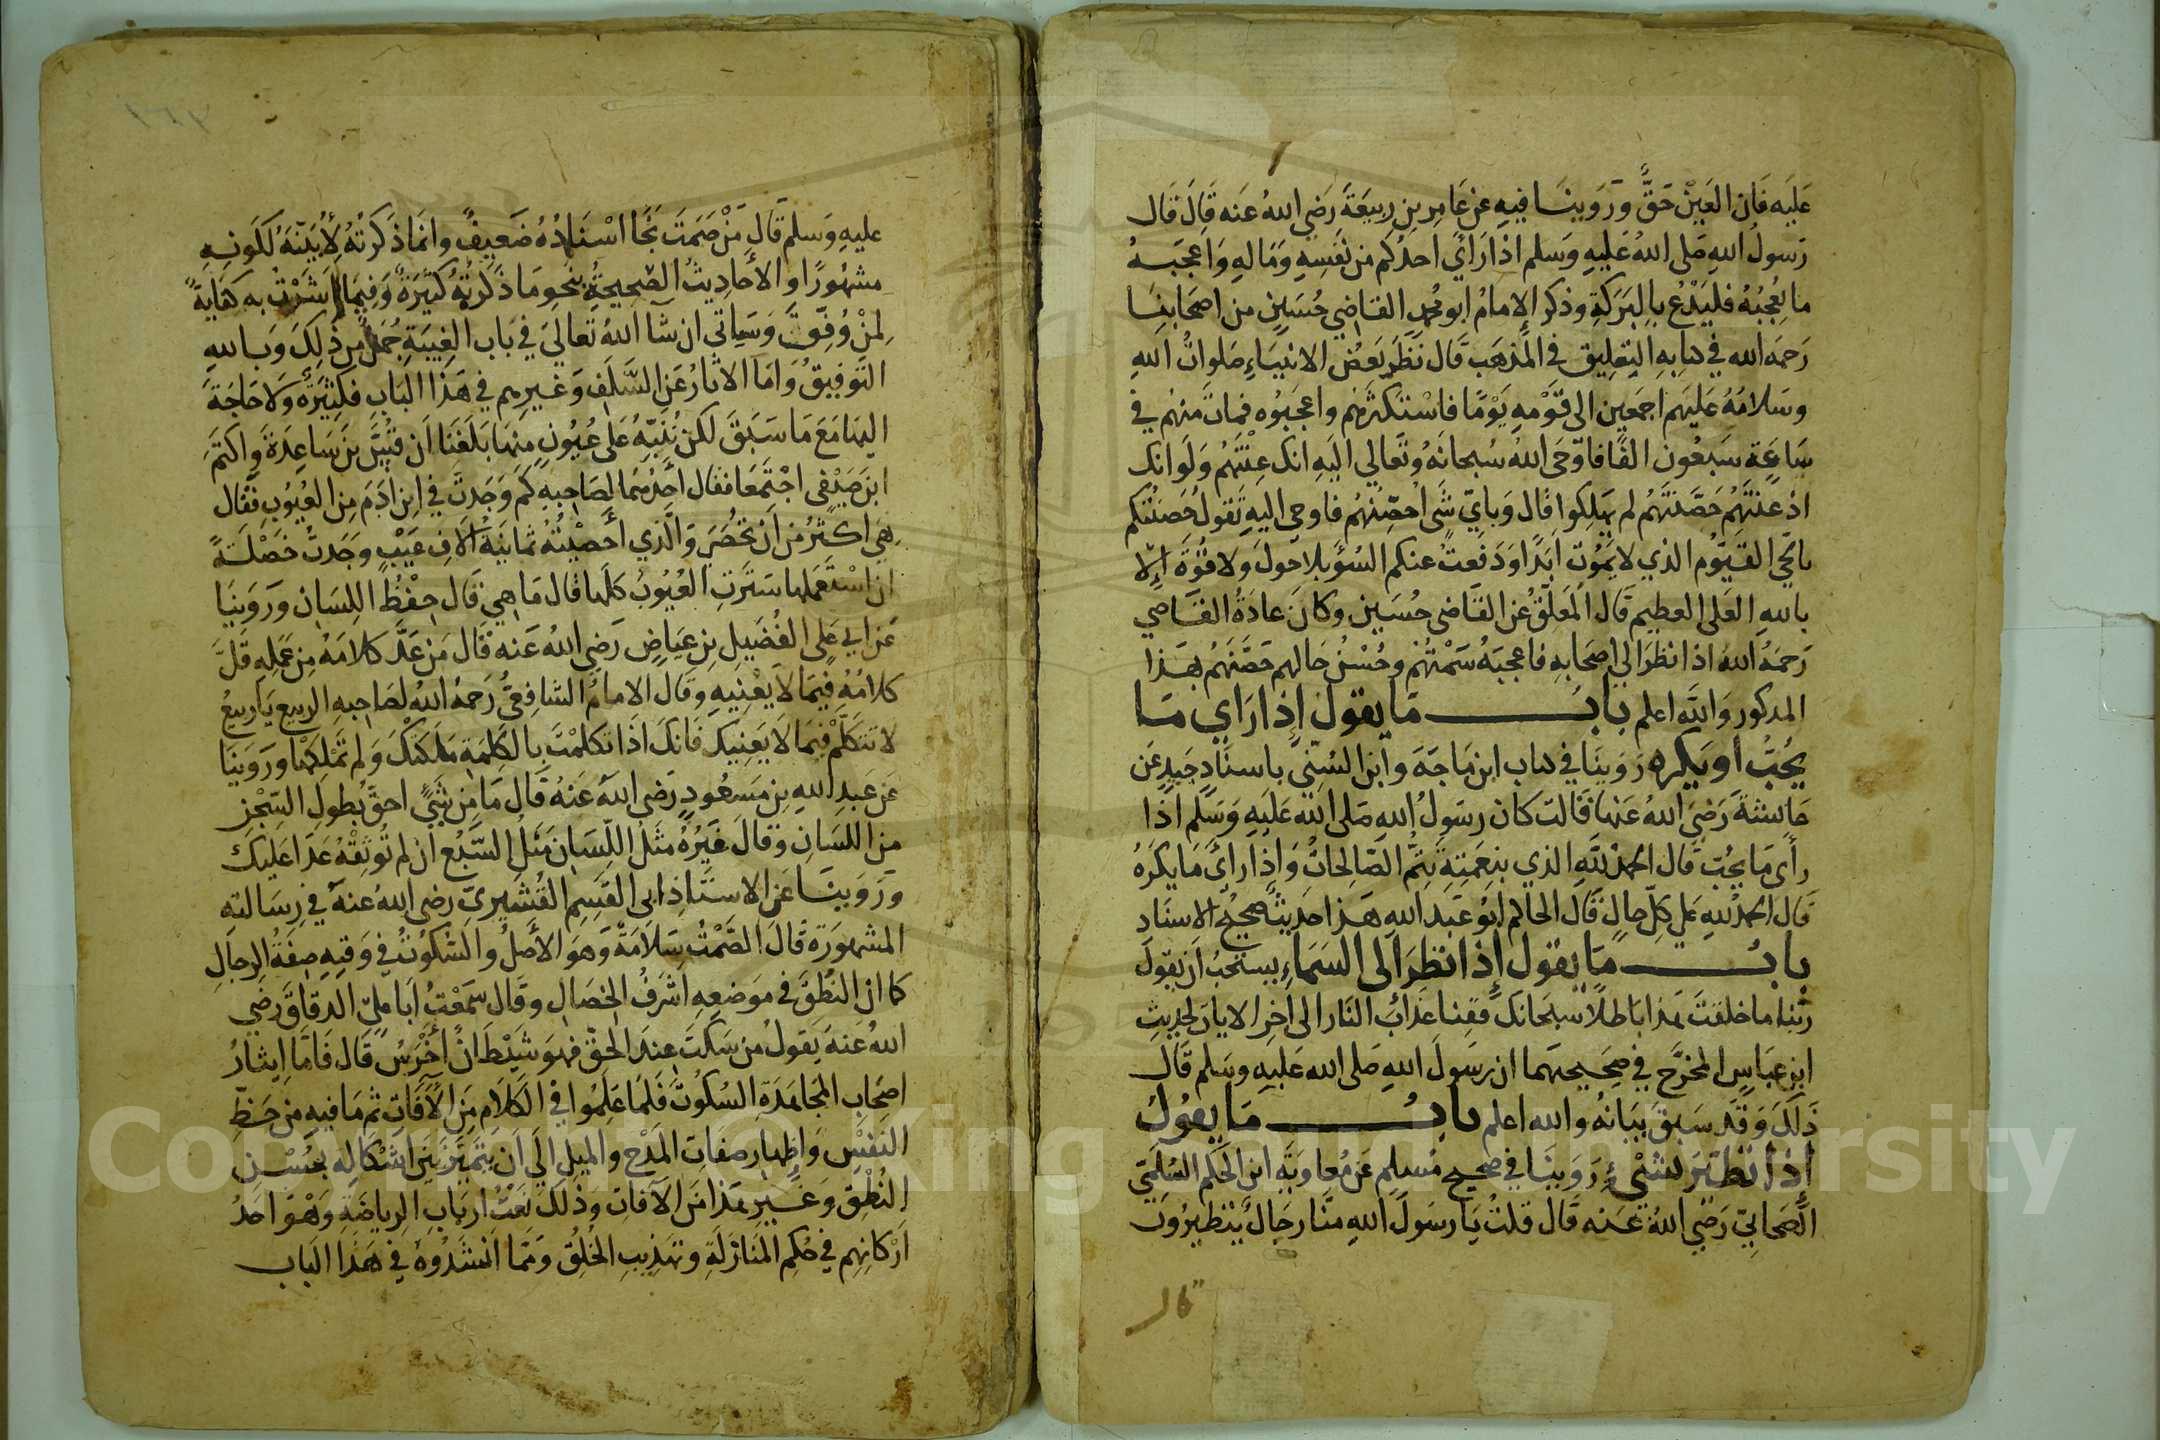 عليه فان العين حق وروينا فيه عن عامر بن ربيعة رضي الله عنه قال قال
رسول الله صلى الله عليه وسلم اذا رأي احدكم من نفسه وماله واعجبه
ما يعجبه فليدع بالبركة وذكر الإمام ابو محمد القاضي حسين من اصحابنا
رحمه الله في كتابه التعليق في المذهب قال نظر بعض الانبياء صلوات الله
وسلامه عليهم اجمعين الى قومه يوما فاستكثرهم واعجبوه فمات منهم في
ساعة سبعون الفا فاوحى الله سبحانه وتعالي اليه انك عنتهم ولو انك
اذ عنتهم حصنتهم لم يهلكوا قال وباي شي احصنهم فاوحي اليه تقول حصنتكم
بالحي القيوم الذي لا يموت ابدا ودفعت عنكم السؤ بلا حول ولا قوة إلا
بالله العلى العظيم قال المعلق عن القاضى حسين وكان عادة القاضي
رحمه الله اذا نظر الي اصحابه فاعجبه سمتهم وحسن حالهم حصنهم بهذا
المذكور والله اعلم باب ما يقول إذا راي ما
يحب أو يكره روينا في كتاب ابن ماجة وابن السني باسناد جيد عن
عايشة رضي الله عنها قالت كان رسول الله صلى الله عليه وسلم اذا
رأى ما يحب قال الحمد لله الذي بنعمته تتم الصالحات واذا رأى ما يكره
قال الحمد لله على كل حال قال الحاكم ابو عبد الله هذا حديث صحيح الاسناد
باب ما يقول إذا نظر الى السماء يستحب ان يقول
ربنا ما خلقت هذا باطلا سبحانك فقنا عذاب النار الى اخر الايات لحديث
ابن عباس المخرج في صحيحيهما ان رسول الله صلى الله عليه وسلم قال
ذلك وقد سبق بيانه والله اعلم باب ما يقول
إذا تطير لشئ روينا في صحيح مسلم عن معاوية ابن الحكم السلمي
الصحابي رضي الله عنه قال قلت يا رسول الله منا رجال يتطيرون
قال
عليه وسلم قال من صمت نجا اسناده ضعيف وانما ذكرته لأبينه لكونه
مشهورا والأحاديث الصحيحة بنحو ما ذكرته كثيرة وفيما اشرت به كفاية
لمن وفق وسياتي ان شا الله تعالي في باب الغيبة جمل من ذلك وبالله
التوفيق واما الآثار عن السلف وغيرهم في هذا الباب فكثيرة ولا حاجة
اليها مع ما سبق لكن ننبه على عيون منها بلغنا ان قس بن ساعدة واكثم
ابن صيفي اجتمعا فقال احدهما لصاحبه كم وجدت في ابن ادم من العيوب فقال
هي اكثر من ان تحصر والذي أحصيته ثمانية آلاف عيب وجدت خصلة
ان استعملها سترت العيوب كلها قال ما هي قال حفظ اللسان وروينا
عن ابي علي الفضيل بن عياض رضي الله عنه قال من عد كلامه من عمله قل
كلامه فيما لا يعنيه وقال الامام الشافعي رحمه الله لصاحبه الربيع يا ربيع
لا تتكلم فيما لا يعنيك فانك اذا تكلمت بالكلمة ملكتك ولم تملكها وروينا
عن عبد الله بن مسعود رضي الله عنه قال ما من شئ احق بطول السجن
من اللسان وقال غيره مثل اللسان مثل السبع ان لم توثقه عدا عليك
وروينا عن الاستاذ ابي القسم القشيري رضي الله عنه في رسالته
المشهورة قال الصمت سلامة وهو الأصل والسكوت في وقته صفة الرجال
كما ان النطق في موضعه اشرف الخصال وقال سمعت أبا علي الدقاق رضي
الله عنه يقول من سكت عند الحق فهو شيطان أخرس قال فاما ايثار
اصحاب المجاهدة السكوت فلما علموا في الكلام من الآفات ثم ما فيه من حظ
النفس واظهار صفات المدح والميل الي ان يتميز بين اشكاله بحسن
النطق وغير هذا من الآفات وذلك نعت ارباب الرياضة وهو احد
أركانهم في حكم المنازلة وتهذيب الخلق ومما انشدوه في هذا الباب
Copyright © King Saud University